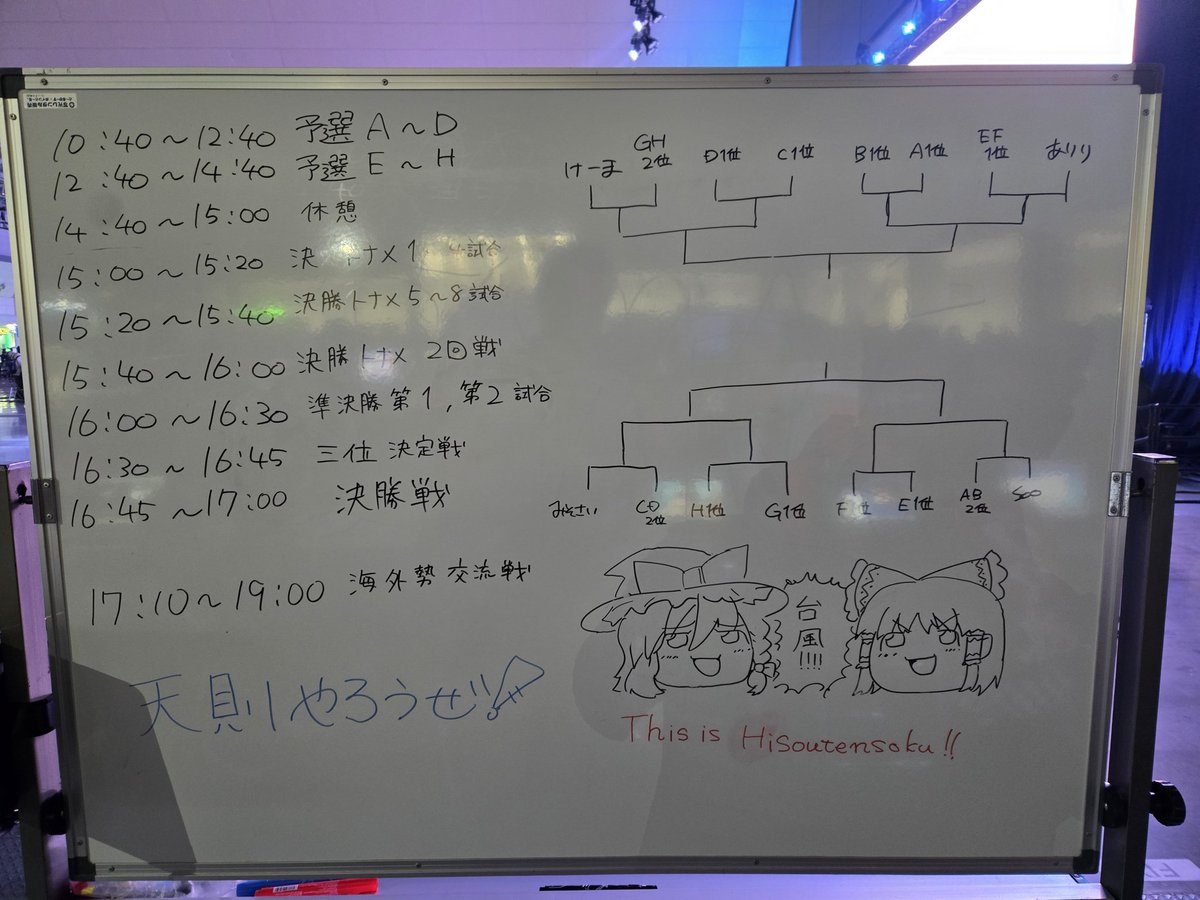 10:40～12:40 予選 A～D
12:40～14:40 予選 E～H
14:40～15:00 休憩
15:00～15:20 決 トナメ 1 4試合
15:20～15:40 決勝トナメ 5～8試合
15:40～16:00 決勝トナメ 2回戦
16:00～16:30 準決勝第1,第2試合
16:30～16:45 三位決定戦
16:45～17:00 決勝戦
17:10～19:00 海外勢交流戦
天則やろうぜ!
けーま GH2位 D1位 C1位 B1位 A1位 EF1位 ありり
みそさい CD2位 H1位 G1位 F1位 E1位 AB2位 Soo
台風!!!!
This is Hisoutensoku!!